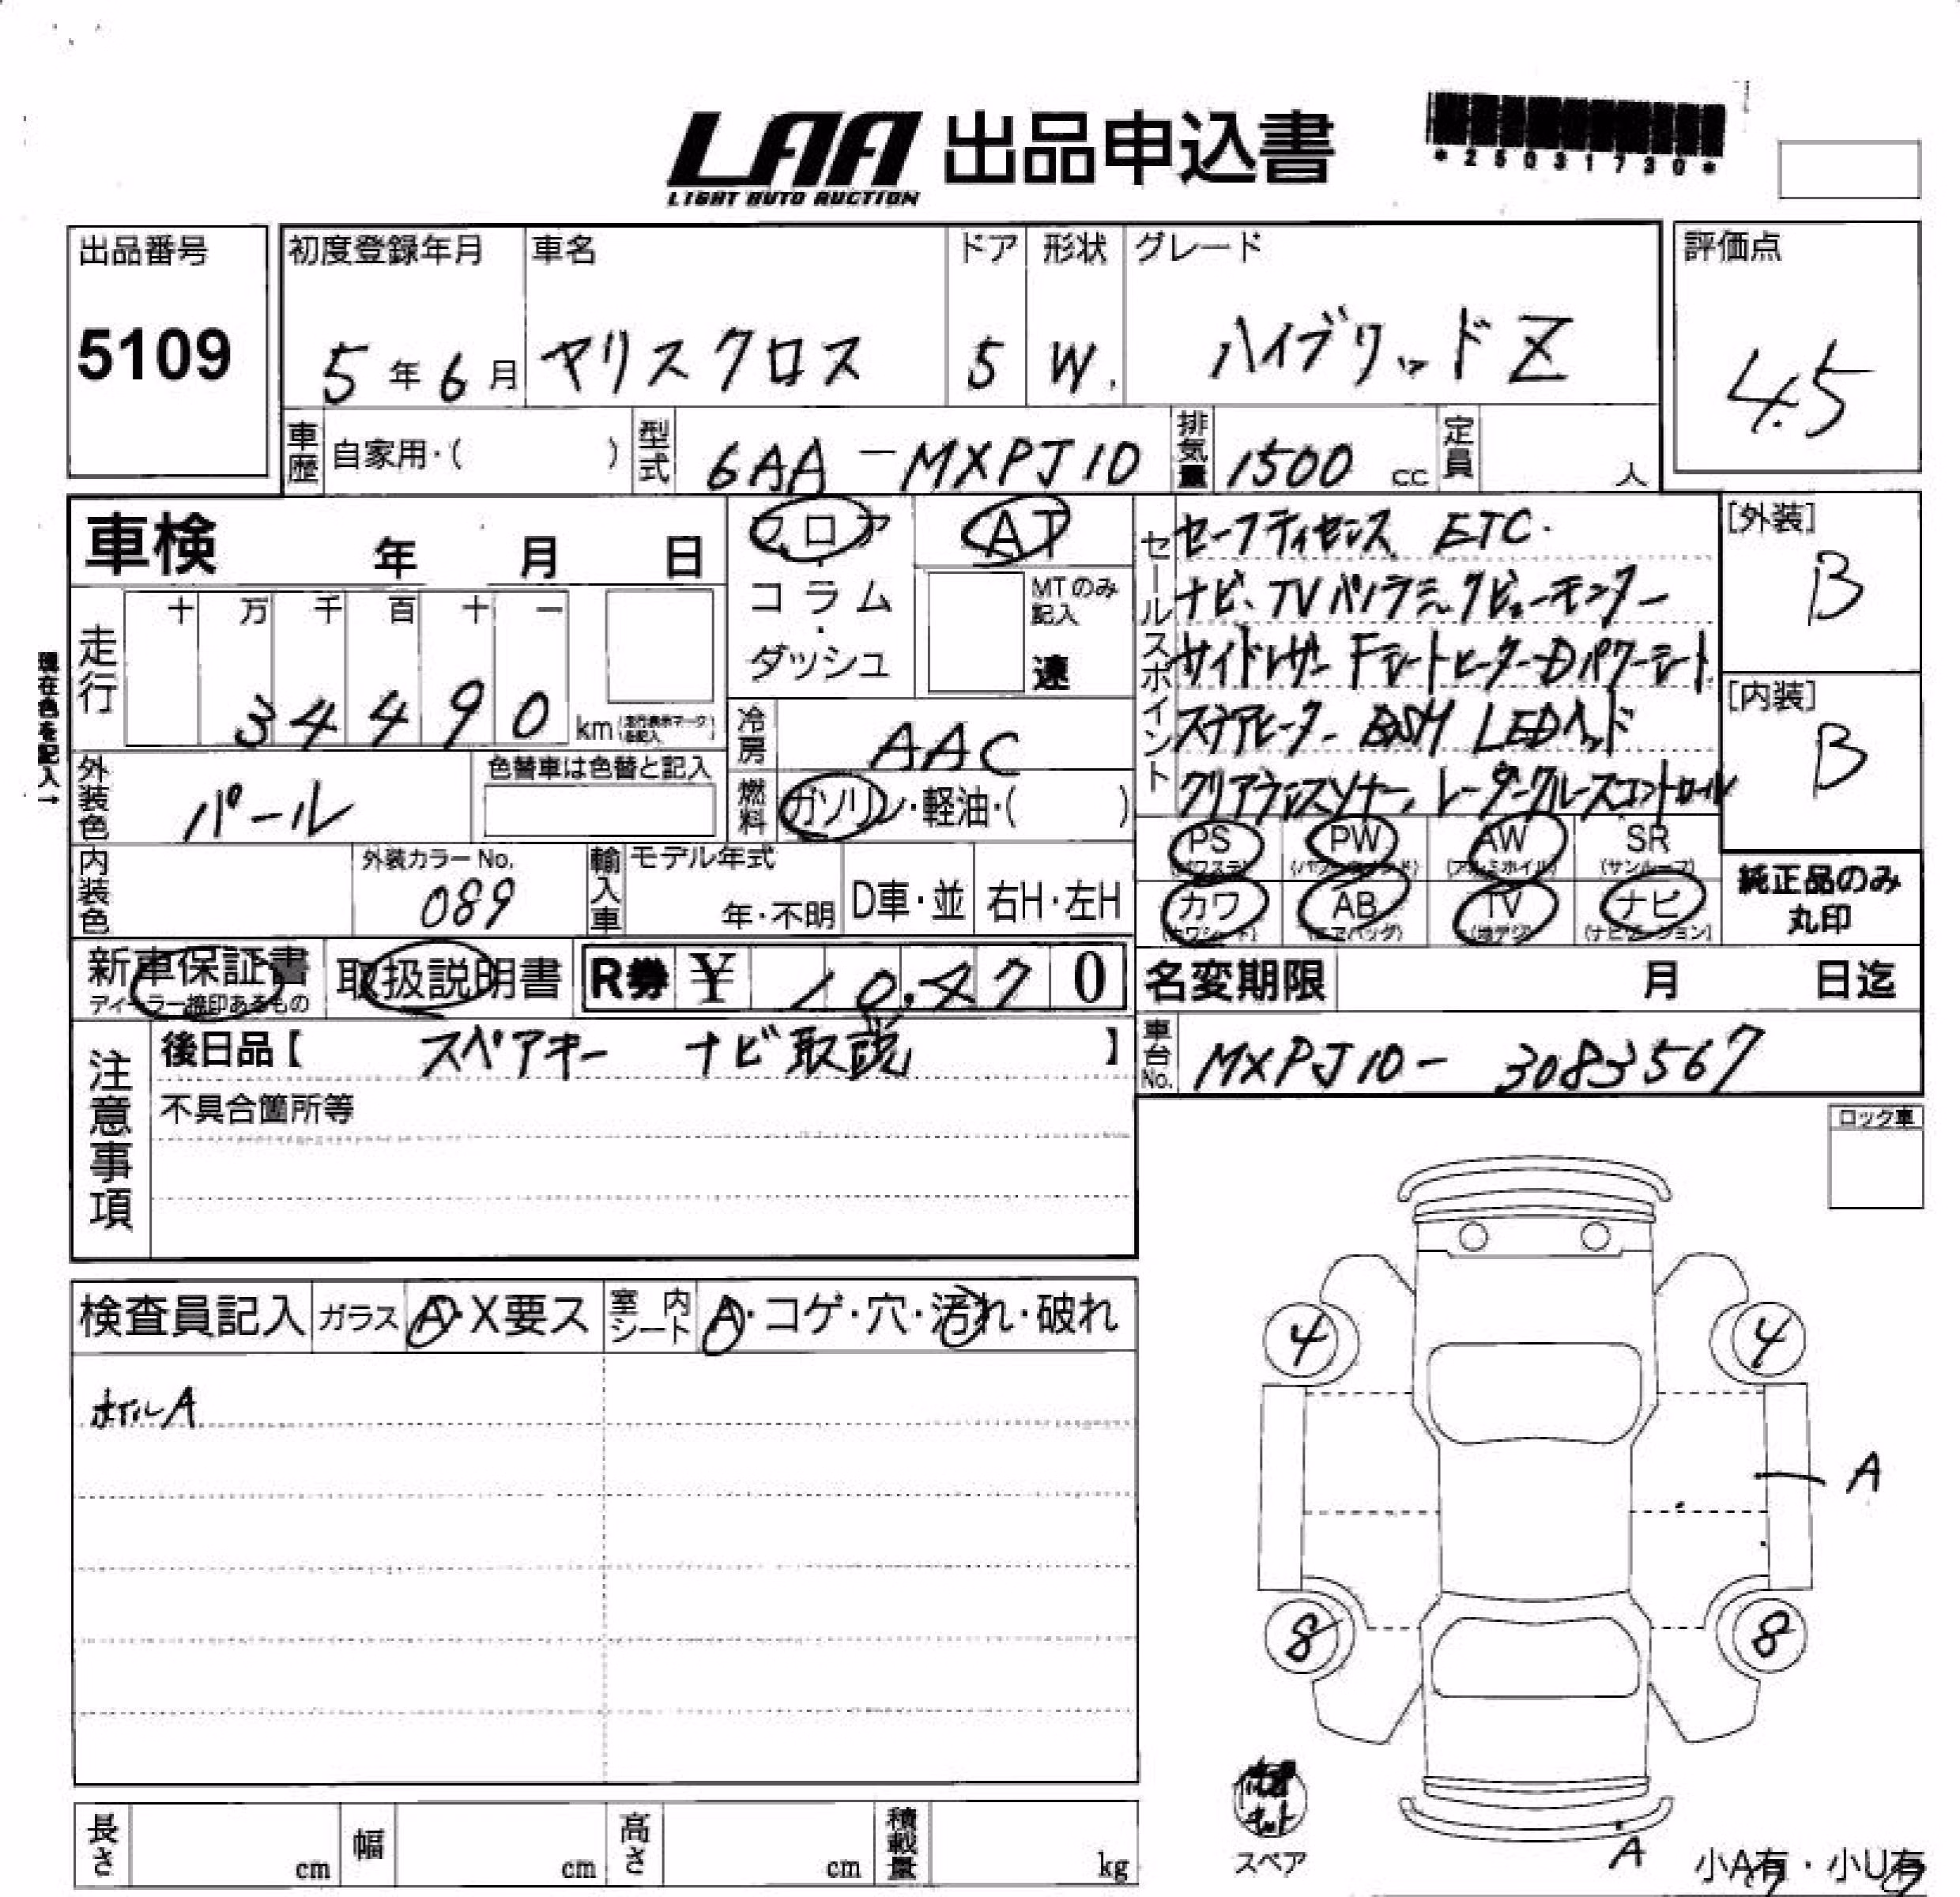 LAA 出品申込書
LIGHT AUTO AUCTION
*25031730*
出品番号
5109
初度登録年月
5年6月
車名
ヤリスクロス
ドア
5
形状
W.
グレード
ハイブリッドZ
評価点
4.5
車歴
自家用・( )
型式
6AA-MXPJ10
排気量
1500 cc
定員
人
車検 年 月 日
フロア
コラム
・
ダッシュ
AT
MTのみ記入
速
セールスポイント
セーフティセンス ETC.
ナビ、TV パノラミックビューモニター
サイドレザー Fシートヒーター Dパワーシート
ステアヒーター BSM LEDヘッド
クリアランスソナー、レーダークルーズコントロール
[外装]
B
[内装]
B
現在色を記入→
走行
十 万 千 百 十 一
34490 km
(走行表示マーク を記入)
冷房
AAC
燃料
ガソリン・軽油・( )
外装色
パール
色替車は色替と記入
内装色
外装カラーNo.
089
輸入車
モデル年式
年・不明
D車・並
右H・左H
PS
(パワステ)
PW
AW
(アルミホイル)
SR
(サンルーフ)
カワ
(カワシート)
AB
(エアバッグ)
TV
(地デジ)
ナビ
(ナビゲーション)
純正品のみ
丸印
新車保証書
ディーラー捺印あるもの
取扱説明書
R券 ¥ 10,470
名変期限 月 日迄
車台No.
MXPJ10- 3083567
注意事項
後日品【 スペアキー ナビ取説 】
不具合箇所等
ロック車
検査員記入
ガラス
A・X要ス
室内シート
A・コゲ・穴・汚れ・破れ
ホイルA
4
4
A
8
8
スペア
A
小A有・小U有
長さ cm
幅 cm
高さ cm
積載量 kg